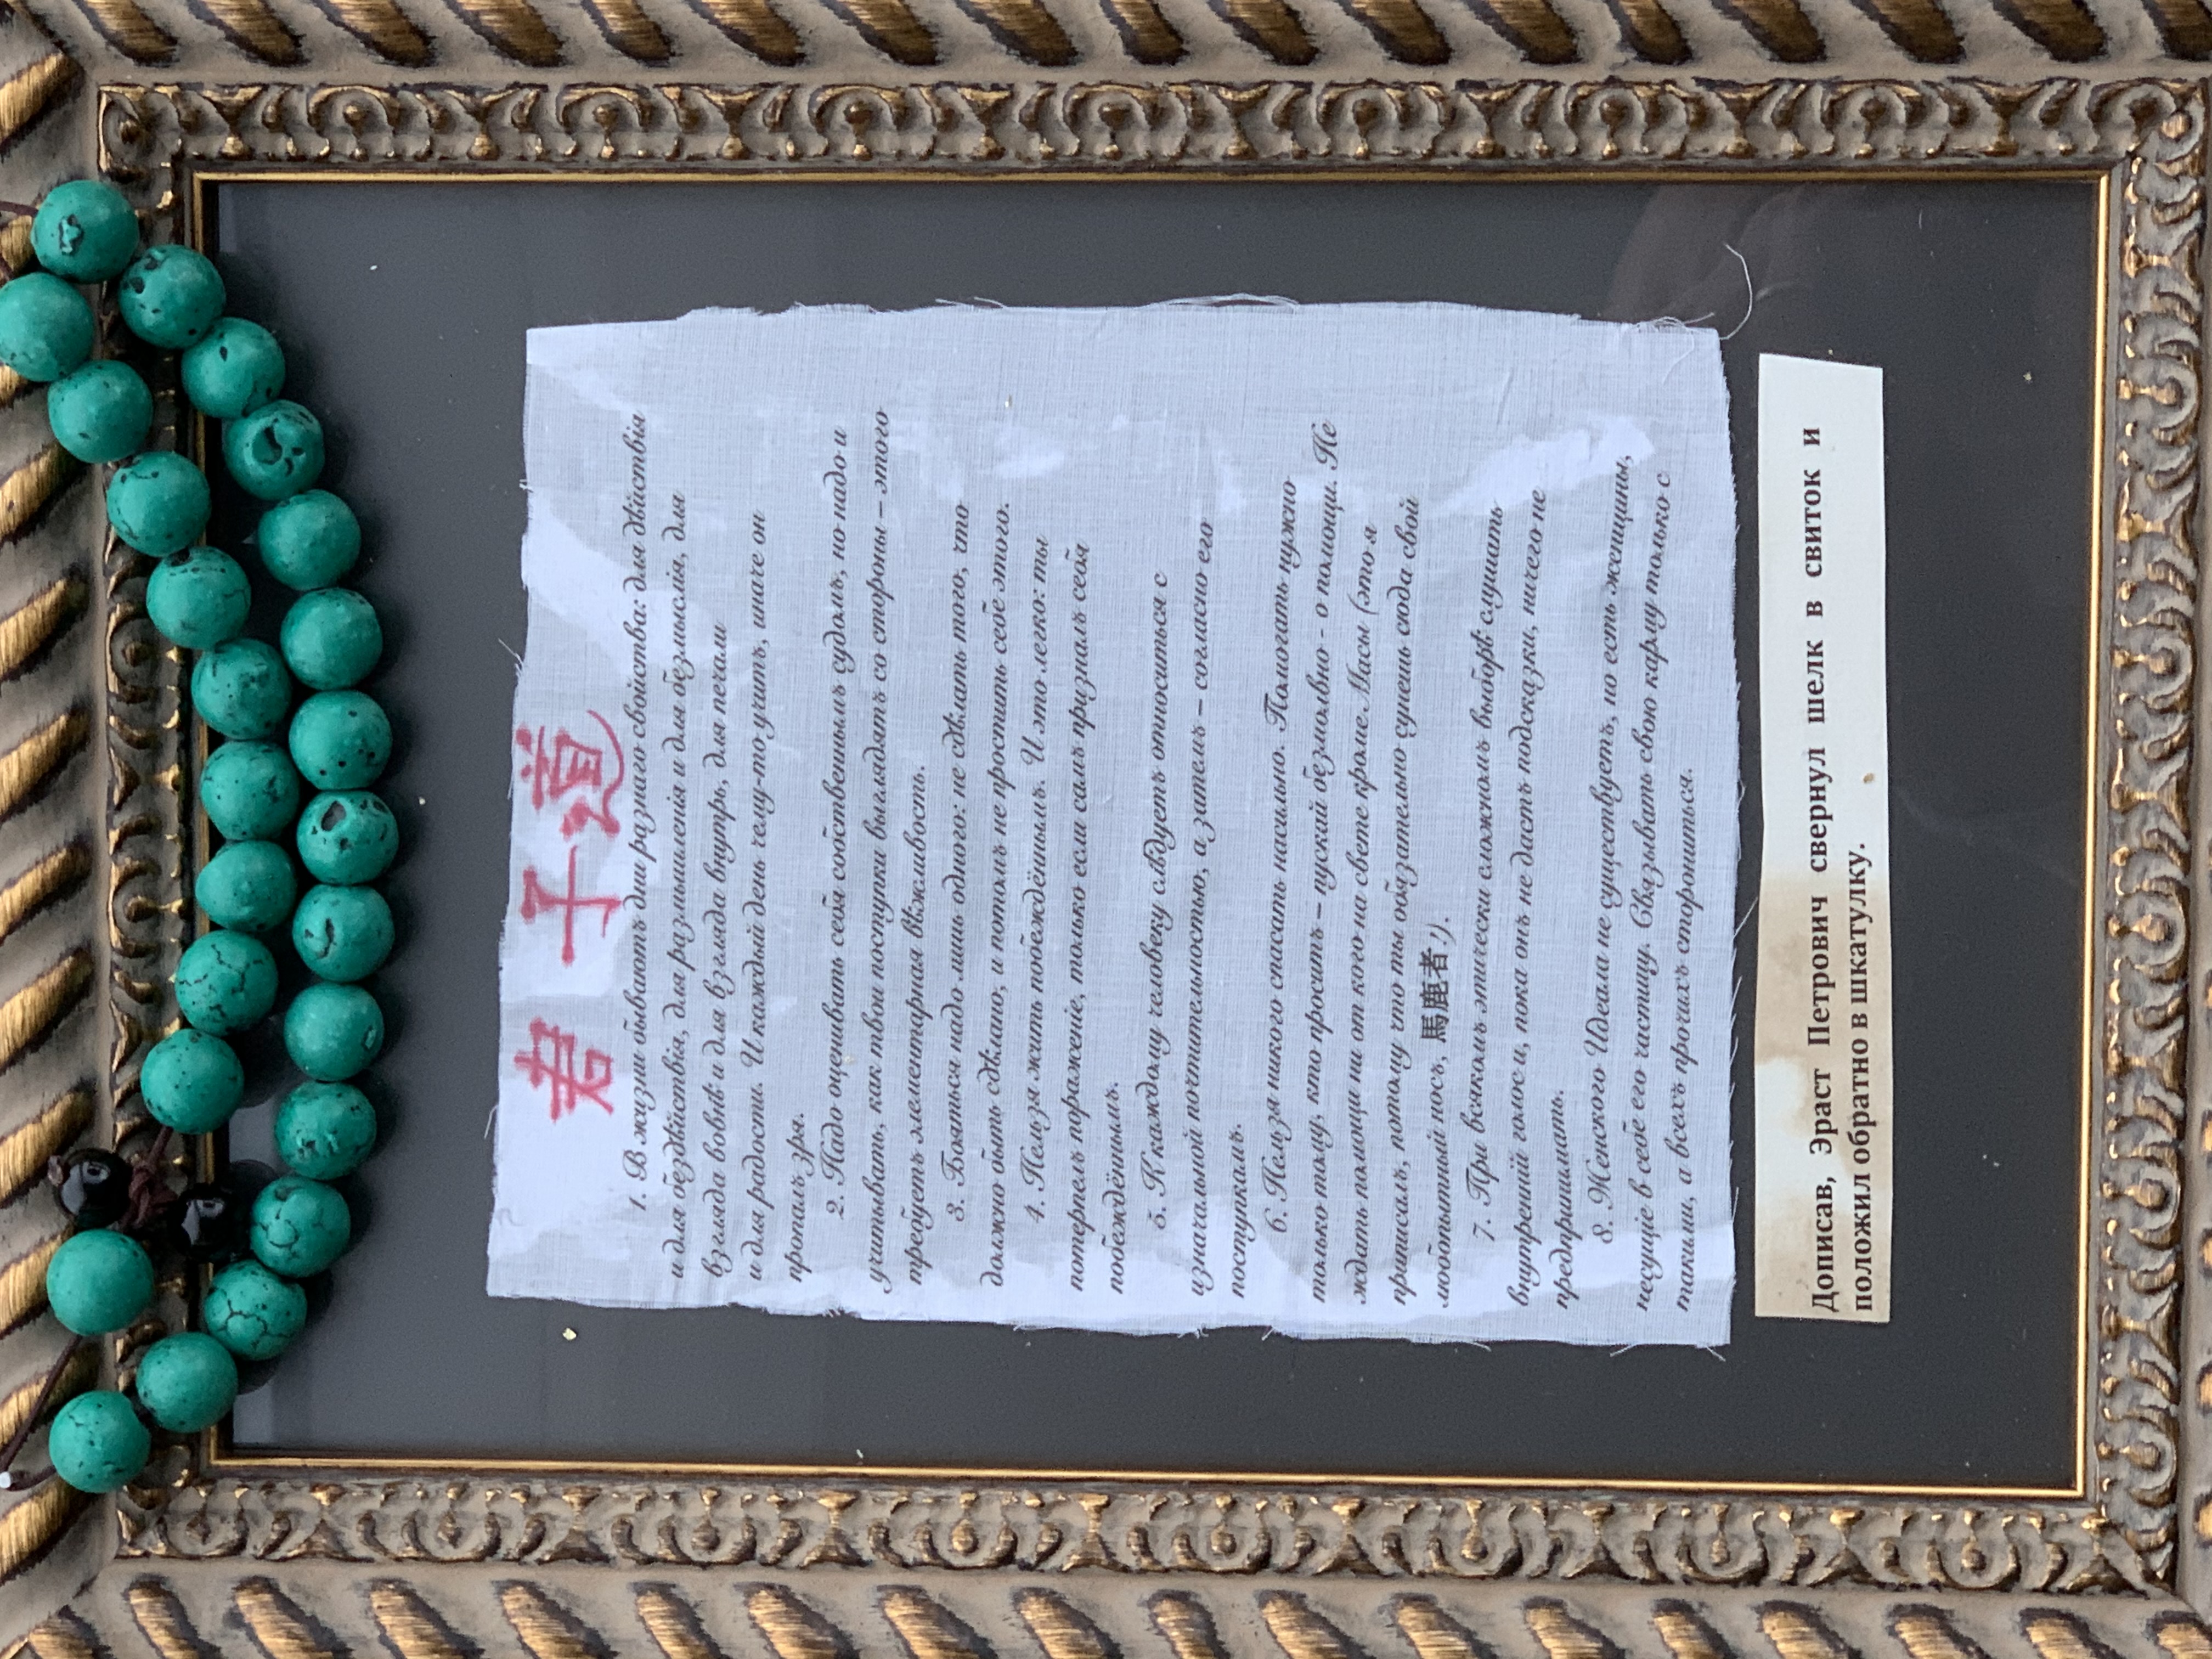 君子道
1. В жизни бываютъ дни разнаго свойства: для дѣйствія
и для бездѣйствія, для размышленія и для безмыслія, для
взгляда вовнѣ и для взгляда внутрь, для печали
и для радости. И каждый день чему-то учитъ, иначе он
пропалъ зря.
2. Надо оценивать себя собственнымъ судомъ, но надо и
учитывать, как твои поступки выглядятъ со стороны – этого
требуетъ элементарная вѣжливость.
3. Бояться надо лишь одного: не сдѣлать того, что
должно быть сдѣлано, и потомъ не простить себѣ этого.
4. Нельзя жить побеждённымъ. И это легко: ты
потерпелъ пораженіе, только если самъ призналъ себя
побеждённымъ.
5. К каждому человеку слѣдуетъ относиться с
изначальной почтительностью, а затемъ – согласно его
поступкамъ.
6. Нельзя никого спасать насильно. Помогать нужно
только тому, кто проситъ – пускай безмолвно - о помощи. Не
ждать помощи ни от кого на свете кроме Масы (это я
приписалъ, потому что ты обязательно сунешь сюда свой
любопытный носъ, 馬鹿者ッ).
7. При всякомъ этически сложномъ выборѣ слушать
внутреній голос и, пока онъ не дастъ подсказки, ничего не
предпринимать.
8. Женского Идеала не существуетъ, но есть женщины,
несущіе в себѣ его частицу. Связывать свою карму только с
такими, а всехъ прочихъ сторониться.
Дописав, Эраст Петрович свернул шелк в свиток и
положил обратно в шкатулку.